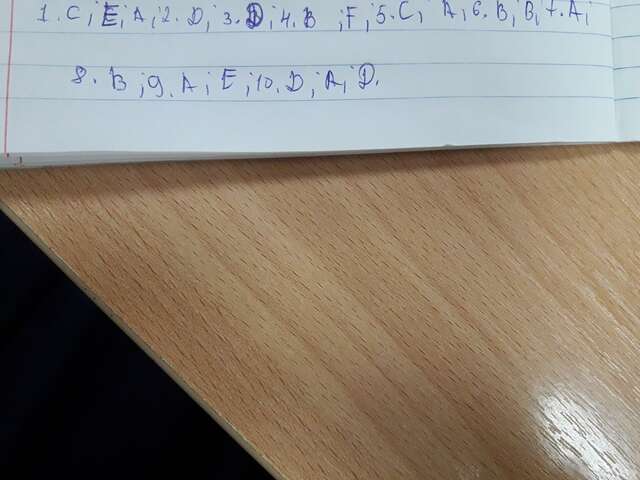 1. C; E; A; 2. D; 3. D; 4. B ; F; 5. C; A; 6. B; B; 7. A;
8. B; 9. A; E; 10. D; A; D.